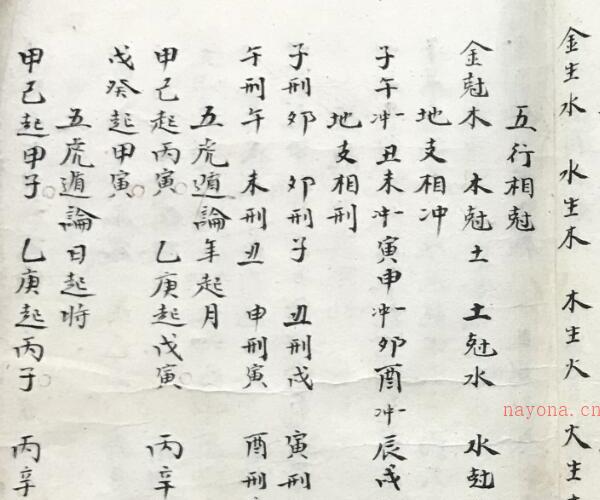 金生水 水生木 木生火 火生
五行相尅
金尅木 木尅土 土尅水 水尅
地支相冲
子午冲 丑未冲 寅申冲 卯酉冲 辰戌
地支相刑
子刑卯 卯刑子 丑刑戌 寅刑
午刑午 未刑丑 申刑寅 酉刑
五虎遁論年起月
甲己起丙寅。乙庚起戊寅。丙辛
戊癸起甲寅。
五虎遁論日起時
甲己起甲子。乙庚起丙子。丙辛
nayona.cn